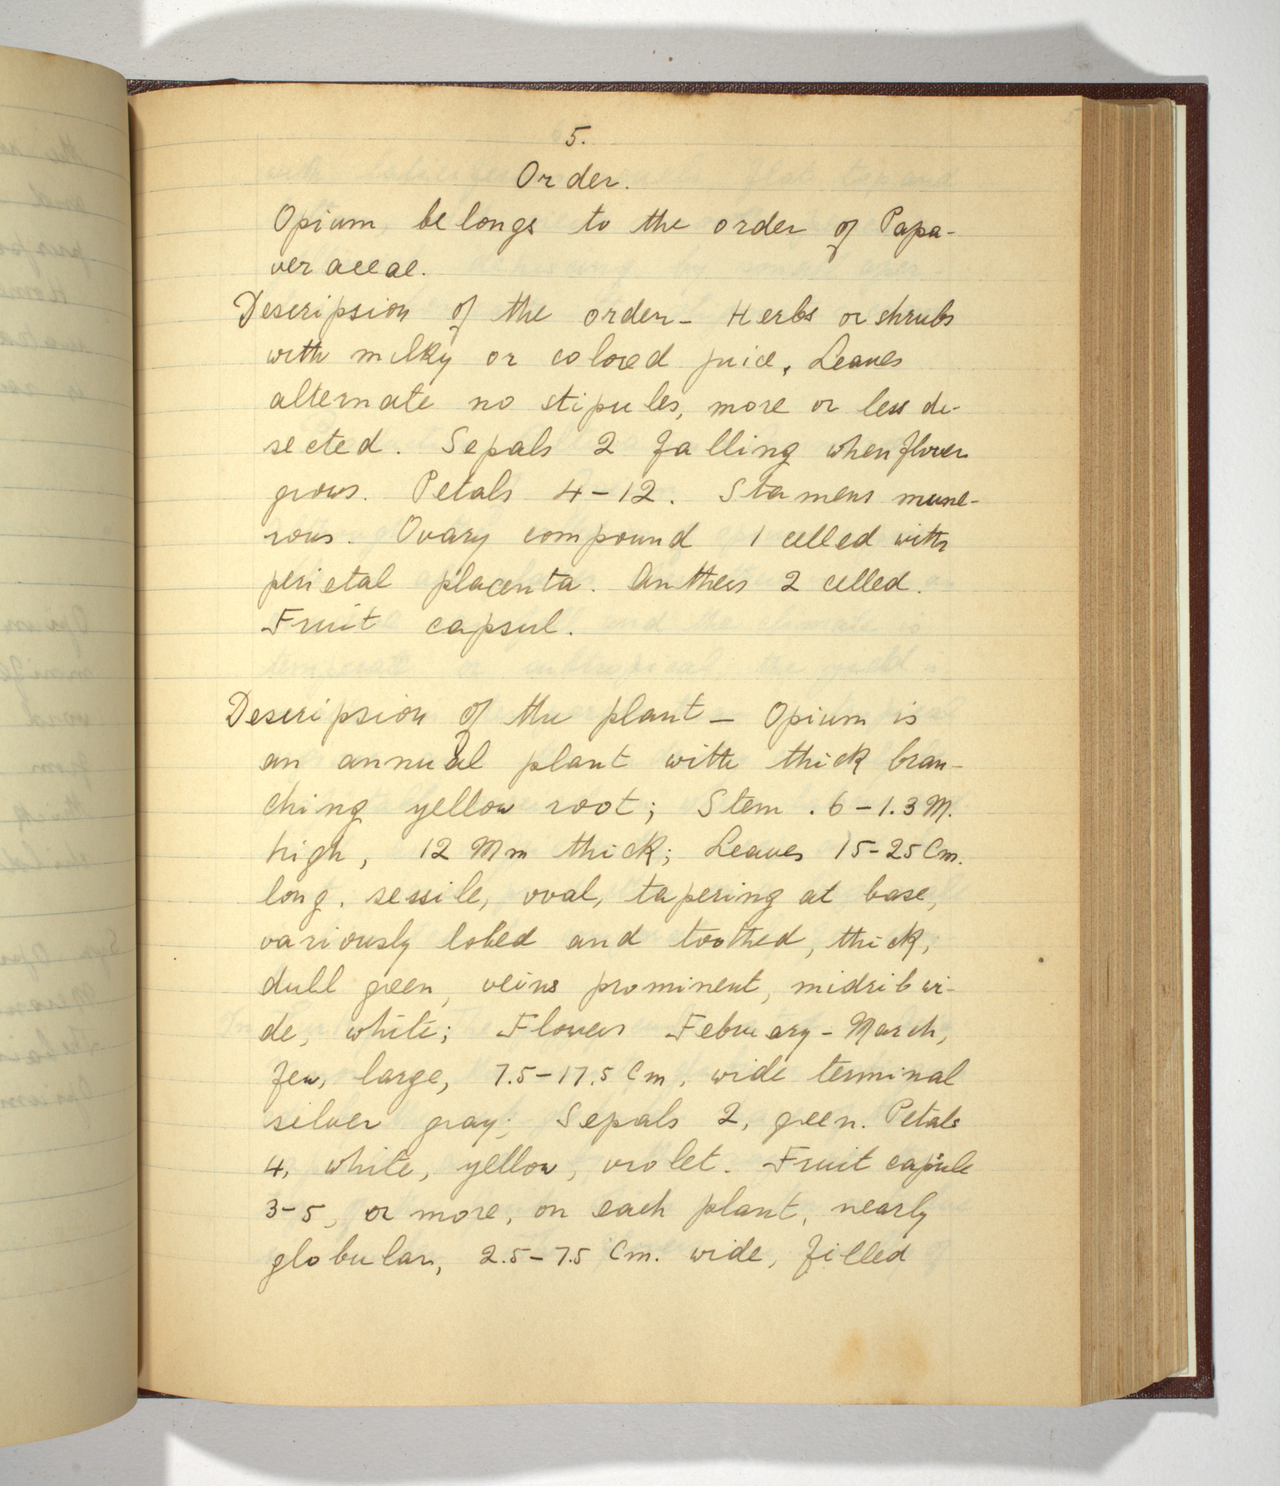 5.
Order.
Opium belongs to the order of Papa-
veraceae.
Descripsion of the order- Herbs or shrubs
with milky or colored juice, Leaves
alternate no stipules, more or less di-
sected. Sepals 2 falling when flower
grows. Petals 4-12. Stamens nume-
rous. Ovary compound 1 celled with
perietal placenta. Anthers 2 celled.
Fruit capsul.
Descripsion of the plant- Opium is
an annual plant with thick bran-
ching yellow root; Stem .6-1.3 M.
high, 12 Mm thick; Leaves 15-25 Cm.
long, sessile, oval, tapering at base,
variously lobed and toothed, thick,
dull green, veins prominent, midrib wi-
de, white; Flowers Februery-March,
few, large, 7.5-17.5 Cm, wide terminal
silver gray; Sepals 2, green. Petals
4, white, yellow, violet. Fruit capsule
3-5, or more, on each plant, nearly
globular, 2.5-7.5 Cm. wide, filled